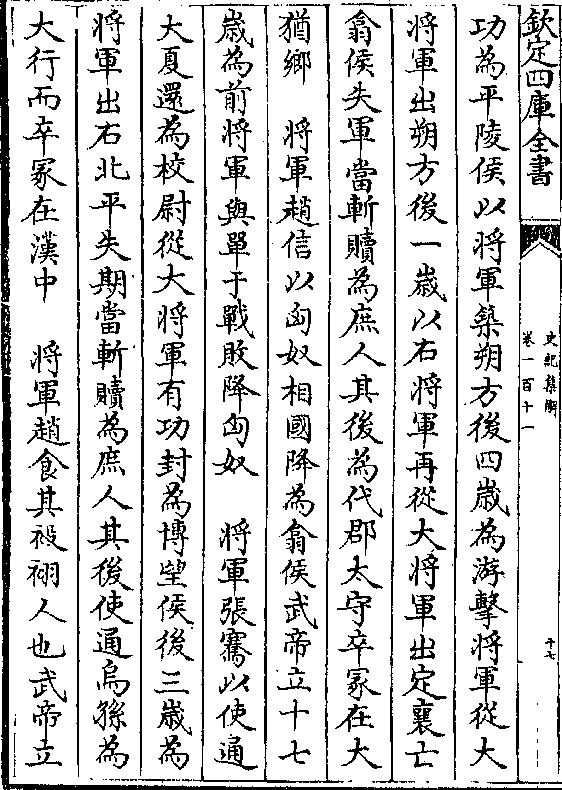 欽定四庫全書
史記集解
卷一百十一
十七
功為平陵侯以將軍築朔方後四歳為游擊將軍從大
將軍出朔方後一歳以右將軍再從大將軍出定襄亡
翕侯失軍當斬贖為庶人其後為代郡太守卒冢在大
猶鄉　將軍趙信以匈奴相國降為翕侯武帝立十七
歳為前將軍與單于戰敗降匈奴　將軍張騫以使通
大夏還為校尉從大將軍有功封為博望侯後三歳為
將軍出右北平失期當斬贖為庶人其後使通烏孫為
大行而卒冢在漢中　將軍趙食其祋祤人也武帝立